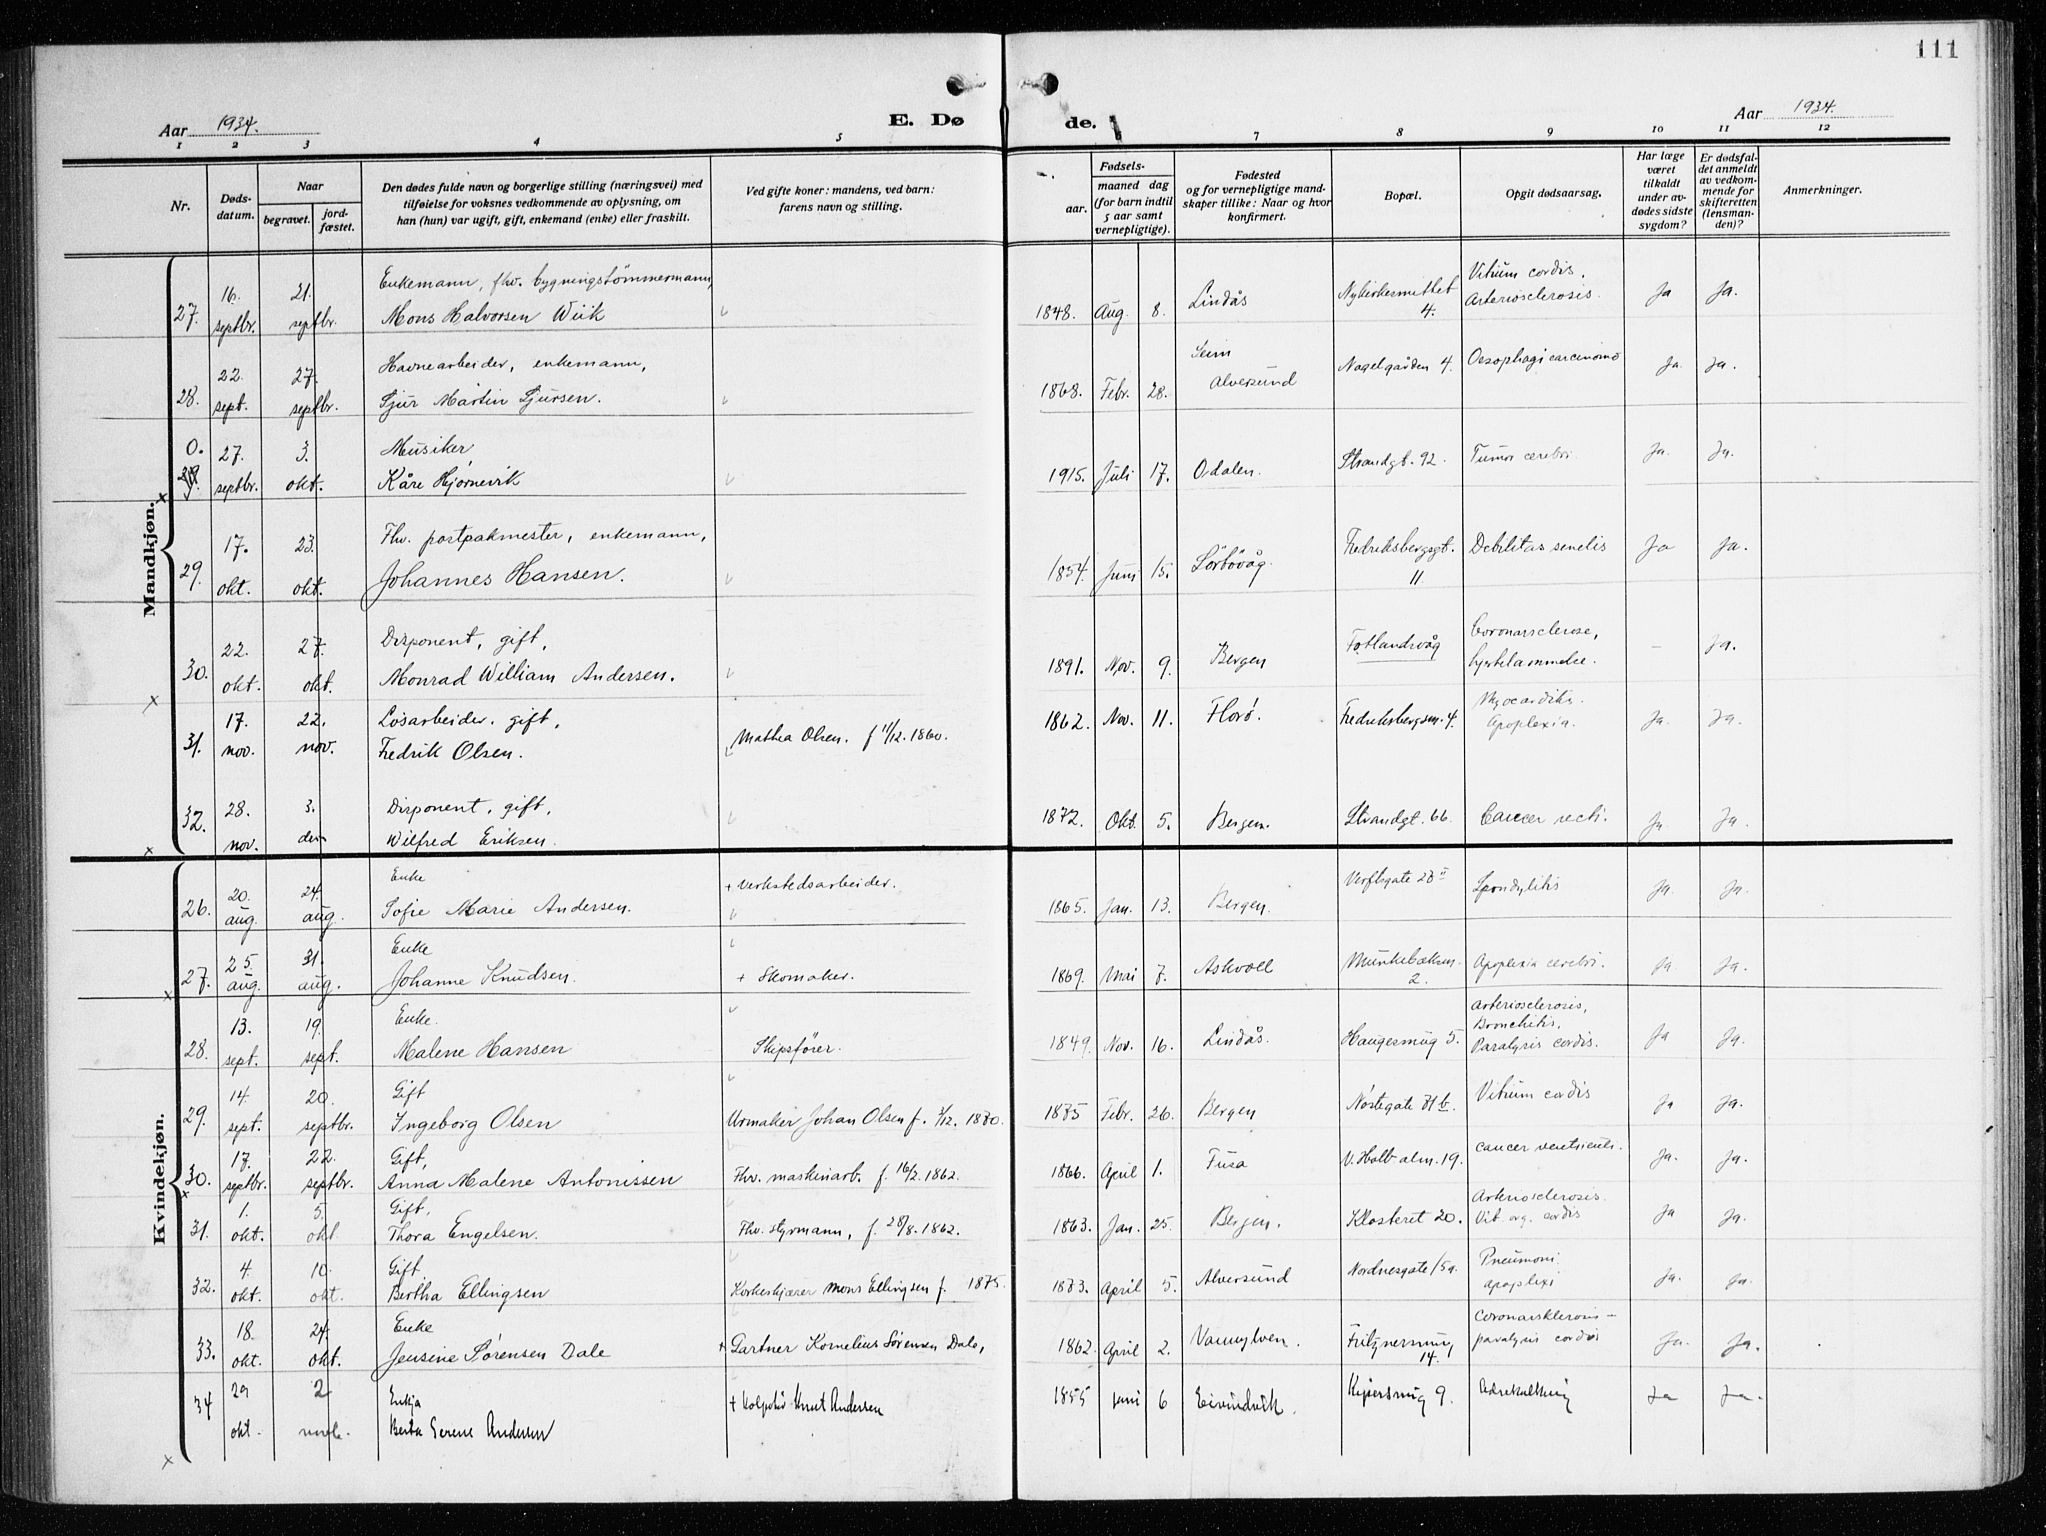 111
Aar 1934.
E. Dø
de.
Aar 1934.
1 2 3 4 5 7 8 9 10 11 12
Nr.
Døds-
datum.
Naar
begravet.
jord-
fæstet.
Den dødes fulde navn og borgerlige stilling (næringsvei) med
tilføielse for voksnes vedkommende av oplysning, om
han (hun) var ugift, gift, enkemand (enke) eller fraskilt.
Ved gifte koner: mandens, ved barn:
farens navn og stilling.
Fødsels-
aar.
maaned dag
(for barn indtil
5 aar samt
vernepligtige).
Fødested
og for vernepligtige mand-
skaper tillike: Naar og hvor
konfirmert.
Bopæl.
Opgit dødsaarsag.
Har læge
været
tilkaldt
under av-
dødes sidste
sygdom?
Er dødsfal-
det anmeldt
av vedkom-
mende for
skifteretten
(lensman-
den)?
Anmerkninger.
Mandkjøn.
Enkemann, fhv. bygningstømmermann, Vitium cordis,
27. 16. septbr. 21. septbr. Mons Halvorsen Wiik 1848. Aug. 8. Lindås 4. Arteriosclerosis. Ja Ja.
Havnearbeider, enkemann, Seim
28. 22. sept. 27. septbr. Sjur Martin Sjursen. 1868. Febr. 28. Alversund Nagelgården 4. Oesophagi carcinoma Ja. Ja.
0. Musiker
27. septbr. 3. okt. Kåre Hjørnevik 1915. Juli 17. Odalen. Strandgt. 92. Tumor cerebri Ja. Ja.
Fhv. postpakmester, enkemann, Fredriksbergsgt.
29. 17. okt. 23. okt. Johannes Hansen. 1854. Juni 15. Sörbövåg. 11 Debilitas senilis Ja Ja.
Disponent, gift, Coronarsclerose,
30. 22. okt. 27. okt. Monrad William Andersen. 1891. Nov. 9. Bergen Fotlandsvåg hjertelammelse. – Ja.
Løsarbeider. gift, Myocarditis.
31. 17. nov. 22. nov. Fredrik Olsen. Mathea Olsen. f 11/12. 1860. 1862. Nov. 11. Florø. Fredriksbergsm. 4. Apoplexia. Ja. Ja.
Disponent, gift,
32. 28. nov. 3. des Wilfred Eriksen. 1872. Okt. 5. Bergen. Strandgt. 66. Cancer recti. Ja. Ja.
Kvindekjøn.
Enke
26. 20. aug. 24. aug. Sofie Marie Andersen. + Verkstedsarbeider. 1865. Jan. 13. Bergen. Verftsgate 28 II Spondylitis Ja. Ja.
Enke
27. 25. aug. 31. aug. Johanne Knudsen. + Skomaker. 1869. Mai 7. Askvoll 2. Apoplexia cerebri. Ja. Ja.
Enke. Arteriosclerosis,
Bronchitis,
28. 13. sept. 19. sept. Malene Hansen Skipsfører. 1849. Nov. 16. Lindås. Haugesmug 5. Paralysis cordis. Ja Ja.
Gift
29. 14. sept. 20. septbr. Ingeborg Olsen Urmaker Johan Olsen f. 3/12. 1870. 1875 Febr. 26. Bergen Nøstegate 71 b. Vitium cordis Ja Ja.
Gift,
30. 17. septbr. 22. septbr. Anna Malene Antonissen Fhv. maskinarb. f. 16/2. 1862. 1866. April 1. Fusa V. Holb. alm. 19. Cancer ventriculi. Ja. Ja.
Gift, Arteriosclerosis.
31. 1. okt. 5. okt Thora Engelsen. Fhv. styrmann, f. 28/8. 1862. 1863. Jan. 25. Bergen. Klosteret 20. Vit. org. cordis Ja Ja.
Gift, Pneumoni
32. 4. okt. 10. okt. Bertha Ellingsen Korkeskjærer Mons Ellingsen f. 1875. 1873. April 5. Alversund Nordnesgate 15a. apoplexi Ja. Ja.
Enke Coronarsklerosis –
33. 18. okt. 24. okt. Jensine Sørensen Dale + Gartner Kornelius Sørensen Dale, 1862. April 2. Vannylven. Fritznersmug 14. paralysis cordis Ja. Ja.
Enkja
34 29 okt. 2 Berta Serene Andersen + Knut Andersen 1855 Juni 6 Eivindvik. Kipersmug 9. Adrekalking Ja Ja.